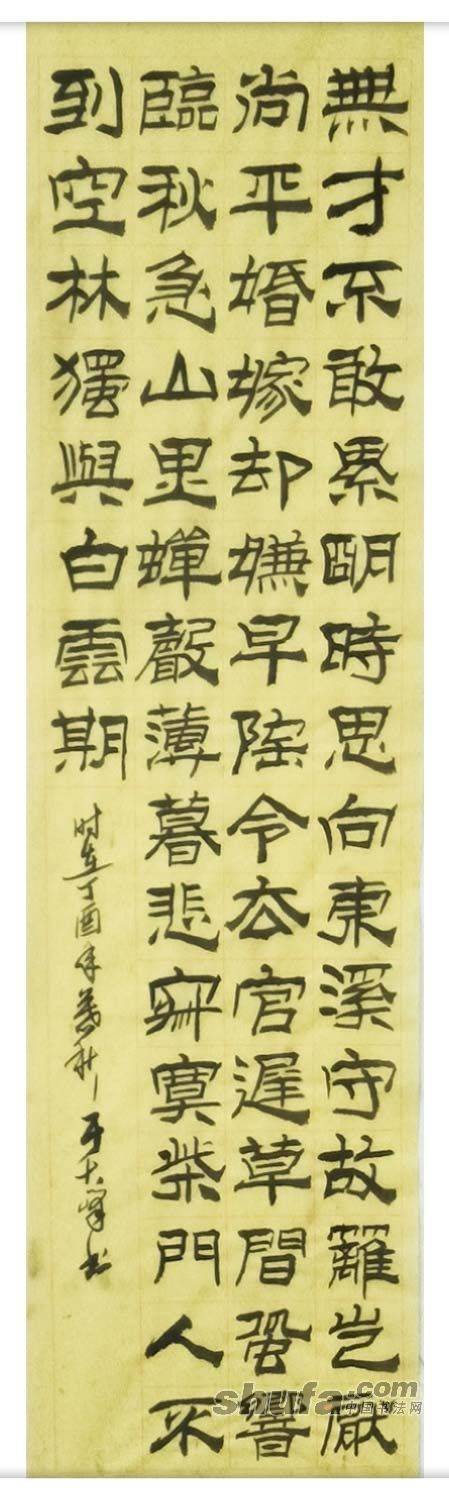 無才不敢累明時思向東溪守故籬岂厭
尚平婚嫁却嫌早陶令去官遲草間蛩響
臨秋急山里蟬聲薄暮悲寂寞柴門人不
到空林獨與白雲期
时在丁酉年暮秋于大峰书
shufa.com
中国书法网